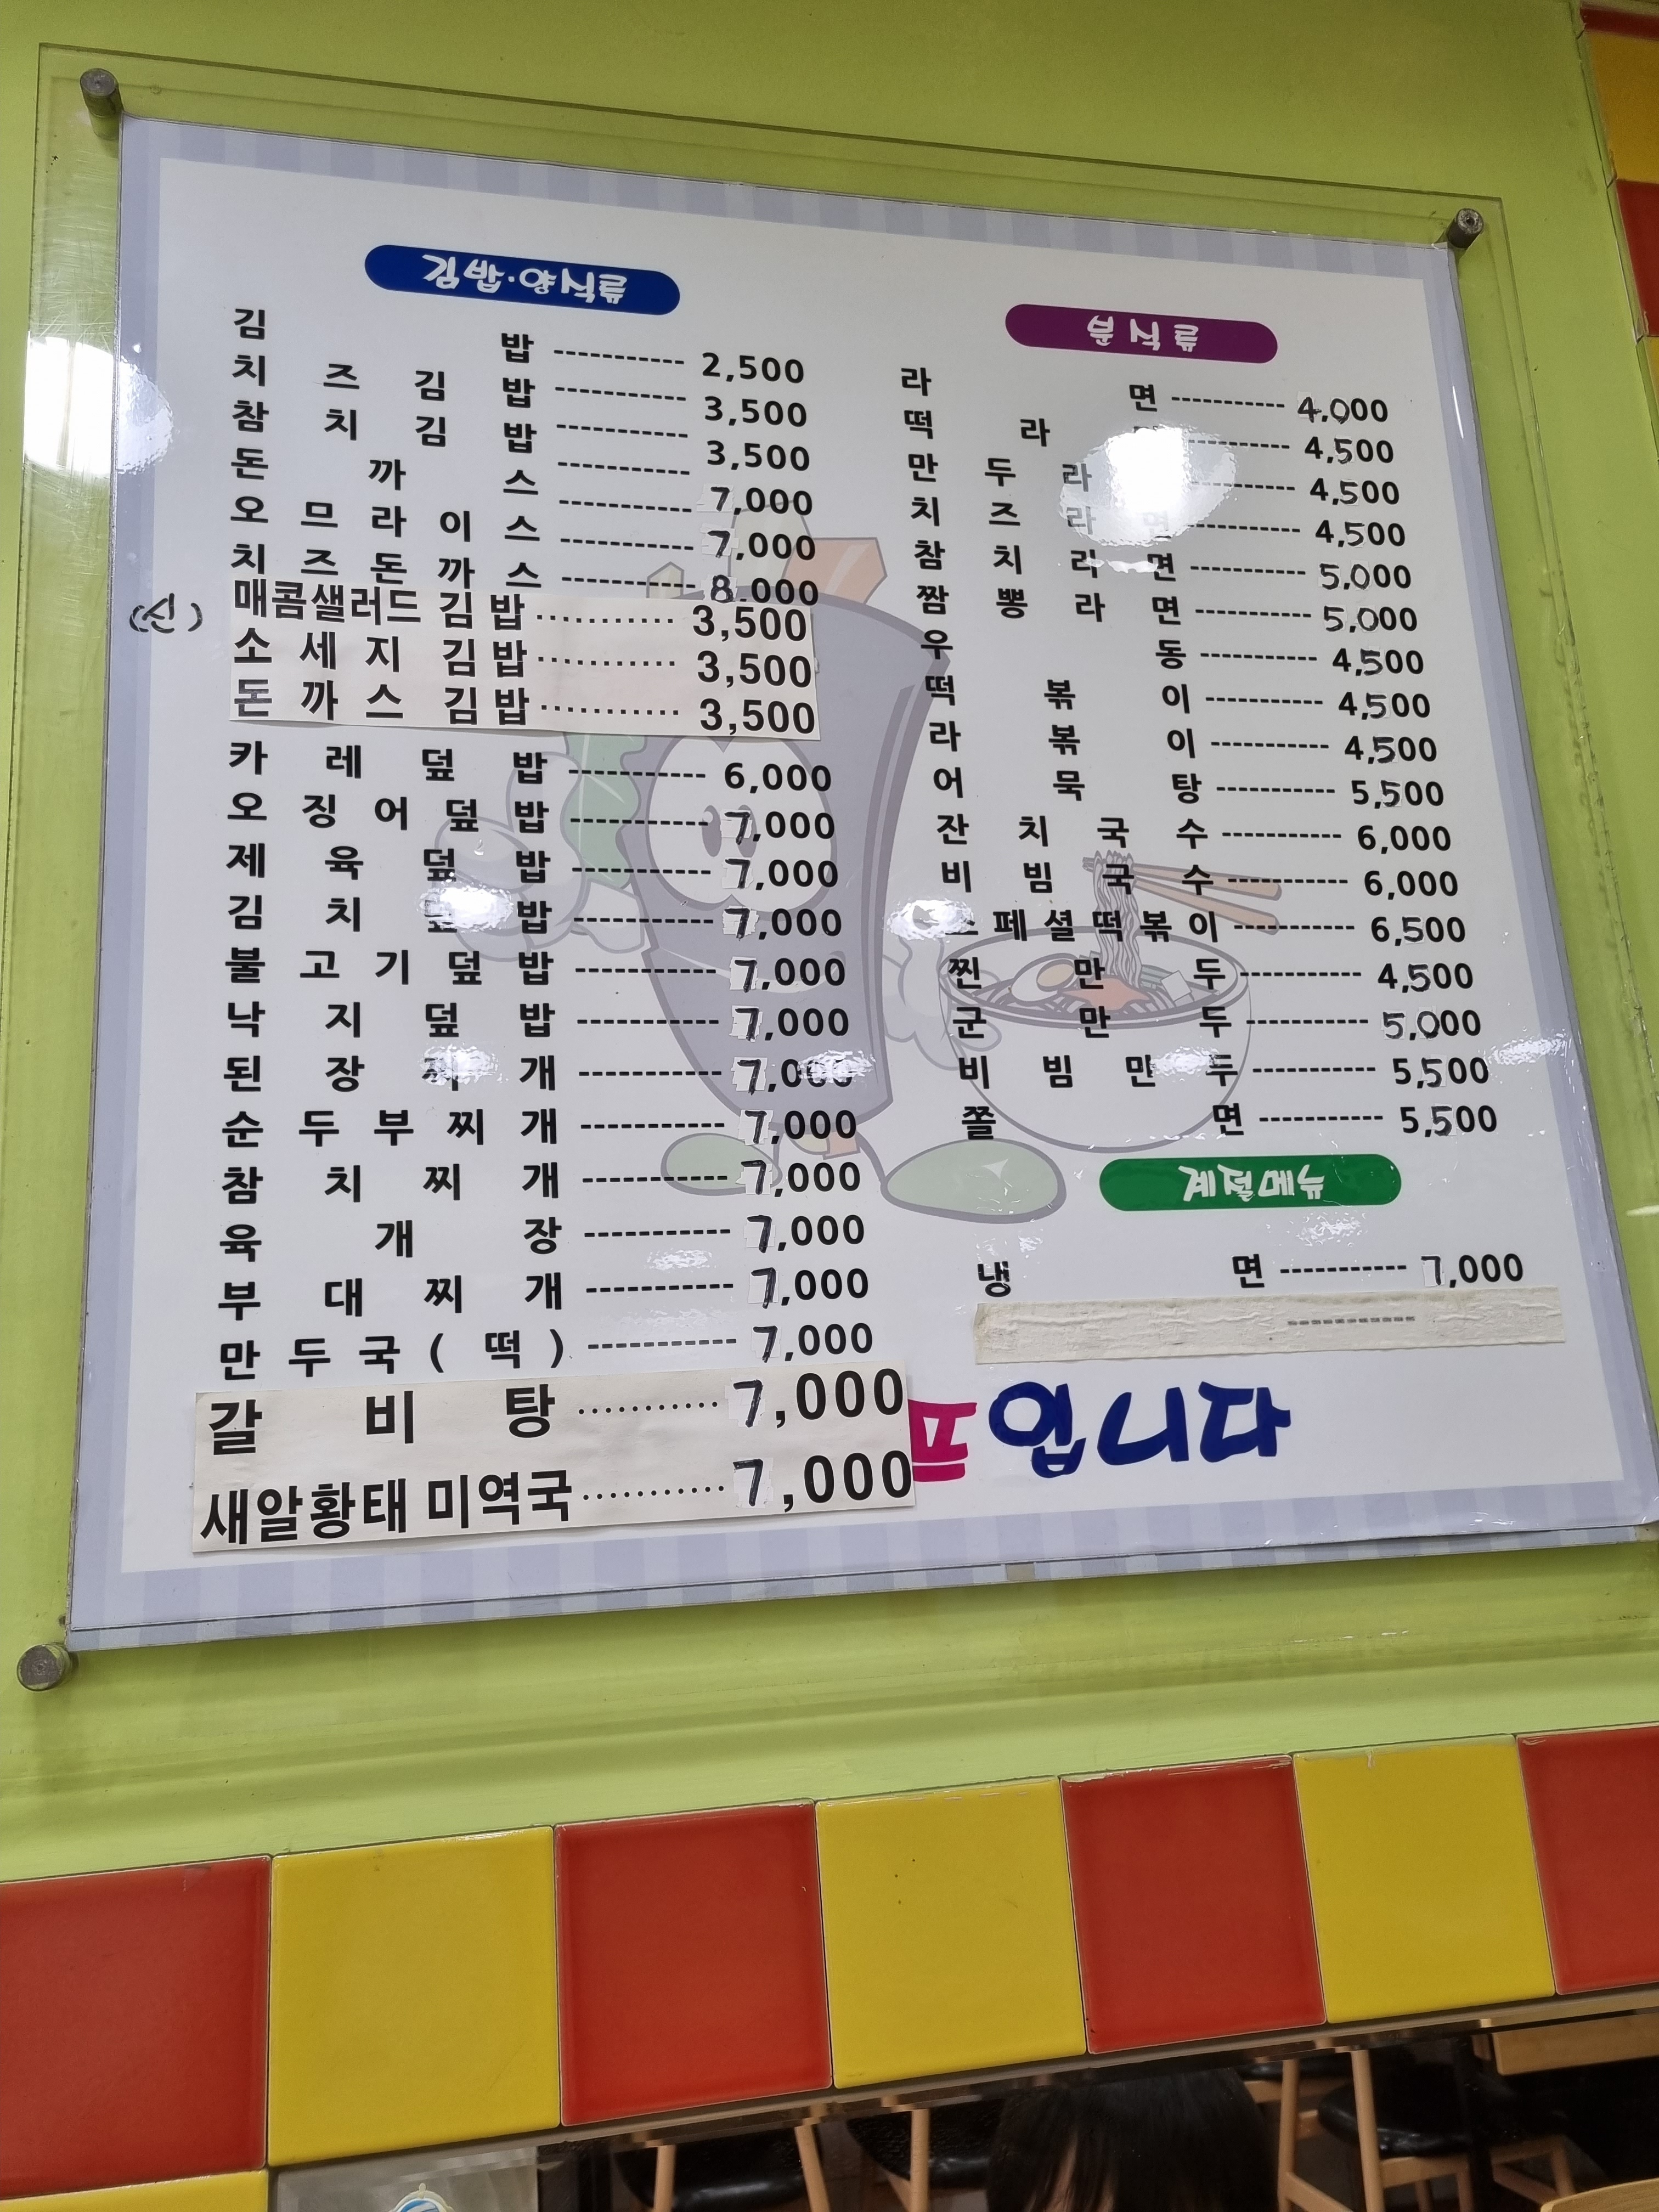 김 밥 ----------- 2,500
치 즈 김 밥 ----------- 3,500
참 치 김 밥 ----------- 3,500
돈 까 스 ----------- 7,000
오 므 라 이 스 ----------- 7,000
치 즈 돈 까 스 ----------- 8,000
(신) 매콤샐러드 김 밥 ··········· 3,500
소 세 지 김 밥 ··········· 3,500
돈 까 스 김 밥 ··········· 3,500
카 레 덮 밥 ----------- 6,000
오 징 어 덮 밥 ----------- 7,000
제 육 덮 밥 ----------- 7,000
김 치 덮 밥 ----------- 7,000
불 고 기 덮 밥 ----------- 7,000
낙 지 덮 밥 ----------- 7,000
된 장 찌 개 ----------- 7,000
순 두 부 찌 개 ----------- 7,000
참 치 찌 개 ----------- 7,000
육 개 장 ----------- 7,000
부 대 찌 개 ----------- 7,000
만 두 국 ( 떡 ) ----------- 7,000
갈 비 탕 ··········· 7,000
새알황태 미역국 ··········· 7,000
분 식 류
라 면 ----------- 4,000
떡 라 ----------- 4,500
만 두 라 ----------- 4,500
치 즈 라 면 ----------- 4,500
참 치 라 면 ----------- 5,000
짬 뽕 라 면 ----------- 5,000
우 동 ----------- 4,500
떡 볶 이 ----------- 4,500
라 볶 이 ----------- 4,500
어 묵 탕 ----------- 5,500
잔 치 국 수 ----------- 6,000
비 빔 국 수 ----------- 6,000
스 페 셜 떡 볶 이 ----------- 6,500
찐 만 두 ----------- 4,500
군 만 두 ----------- 5,000
비 빔 만 두 ----------- 5,500
쫄 면 ----------- 5,500
계절메뉴
냉 면 ----------- 7,000
입니다